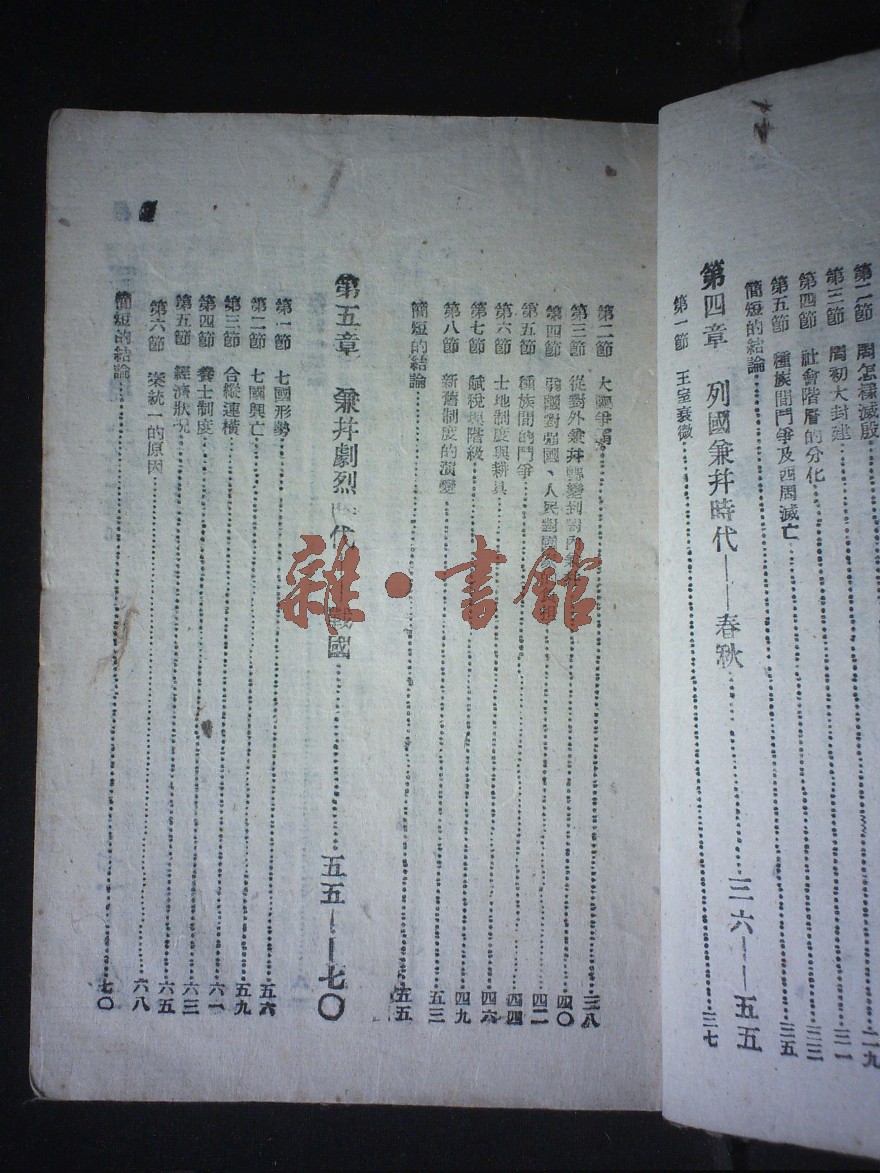 第二節 周怎樣滅殷……二九
第三節 周初大封建……三一
第四節 社會階層的分化……三三
第五節 種族間鬥爭及西周滅亡……三五
簡短的結論
第四章 列國兼并時代——春秋……三六——五五
第一節 王室衰微……三七
第二節 大國爭霸……三八
第三節 從對外兼并轉變到對內兼并……四〇
第四節 弱國對强國、人民對……四二
第五節 種族間的鬥爭……四四
第六節 土地制度與耕具……四六
第七節 賦稅與階級……四九
第八節 新舊制度的演變……五三
簡短的結論……五五
第五章 兼并劇烈時代——戰國……五五——七〇
第一節 七國形勢……五六
第二節 七國興亡……五九
第三節 合縱連橫……六一
第四節 養士制度……六三
第五節 經濟狀况……六五
第六節 秦統一的原因……六八
簡短的結論……七〇
雜·書館